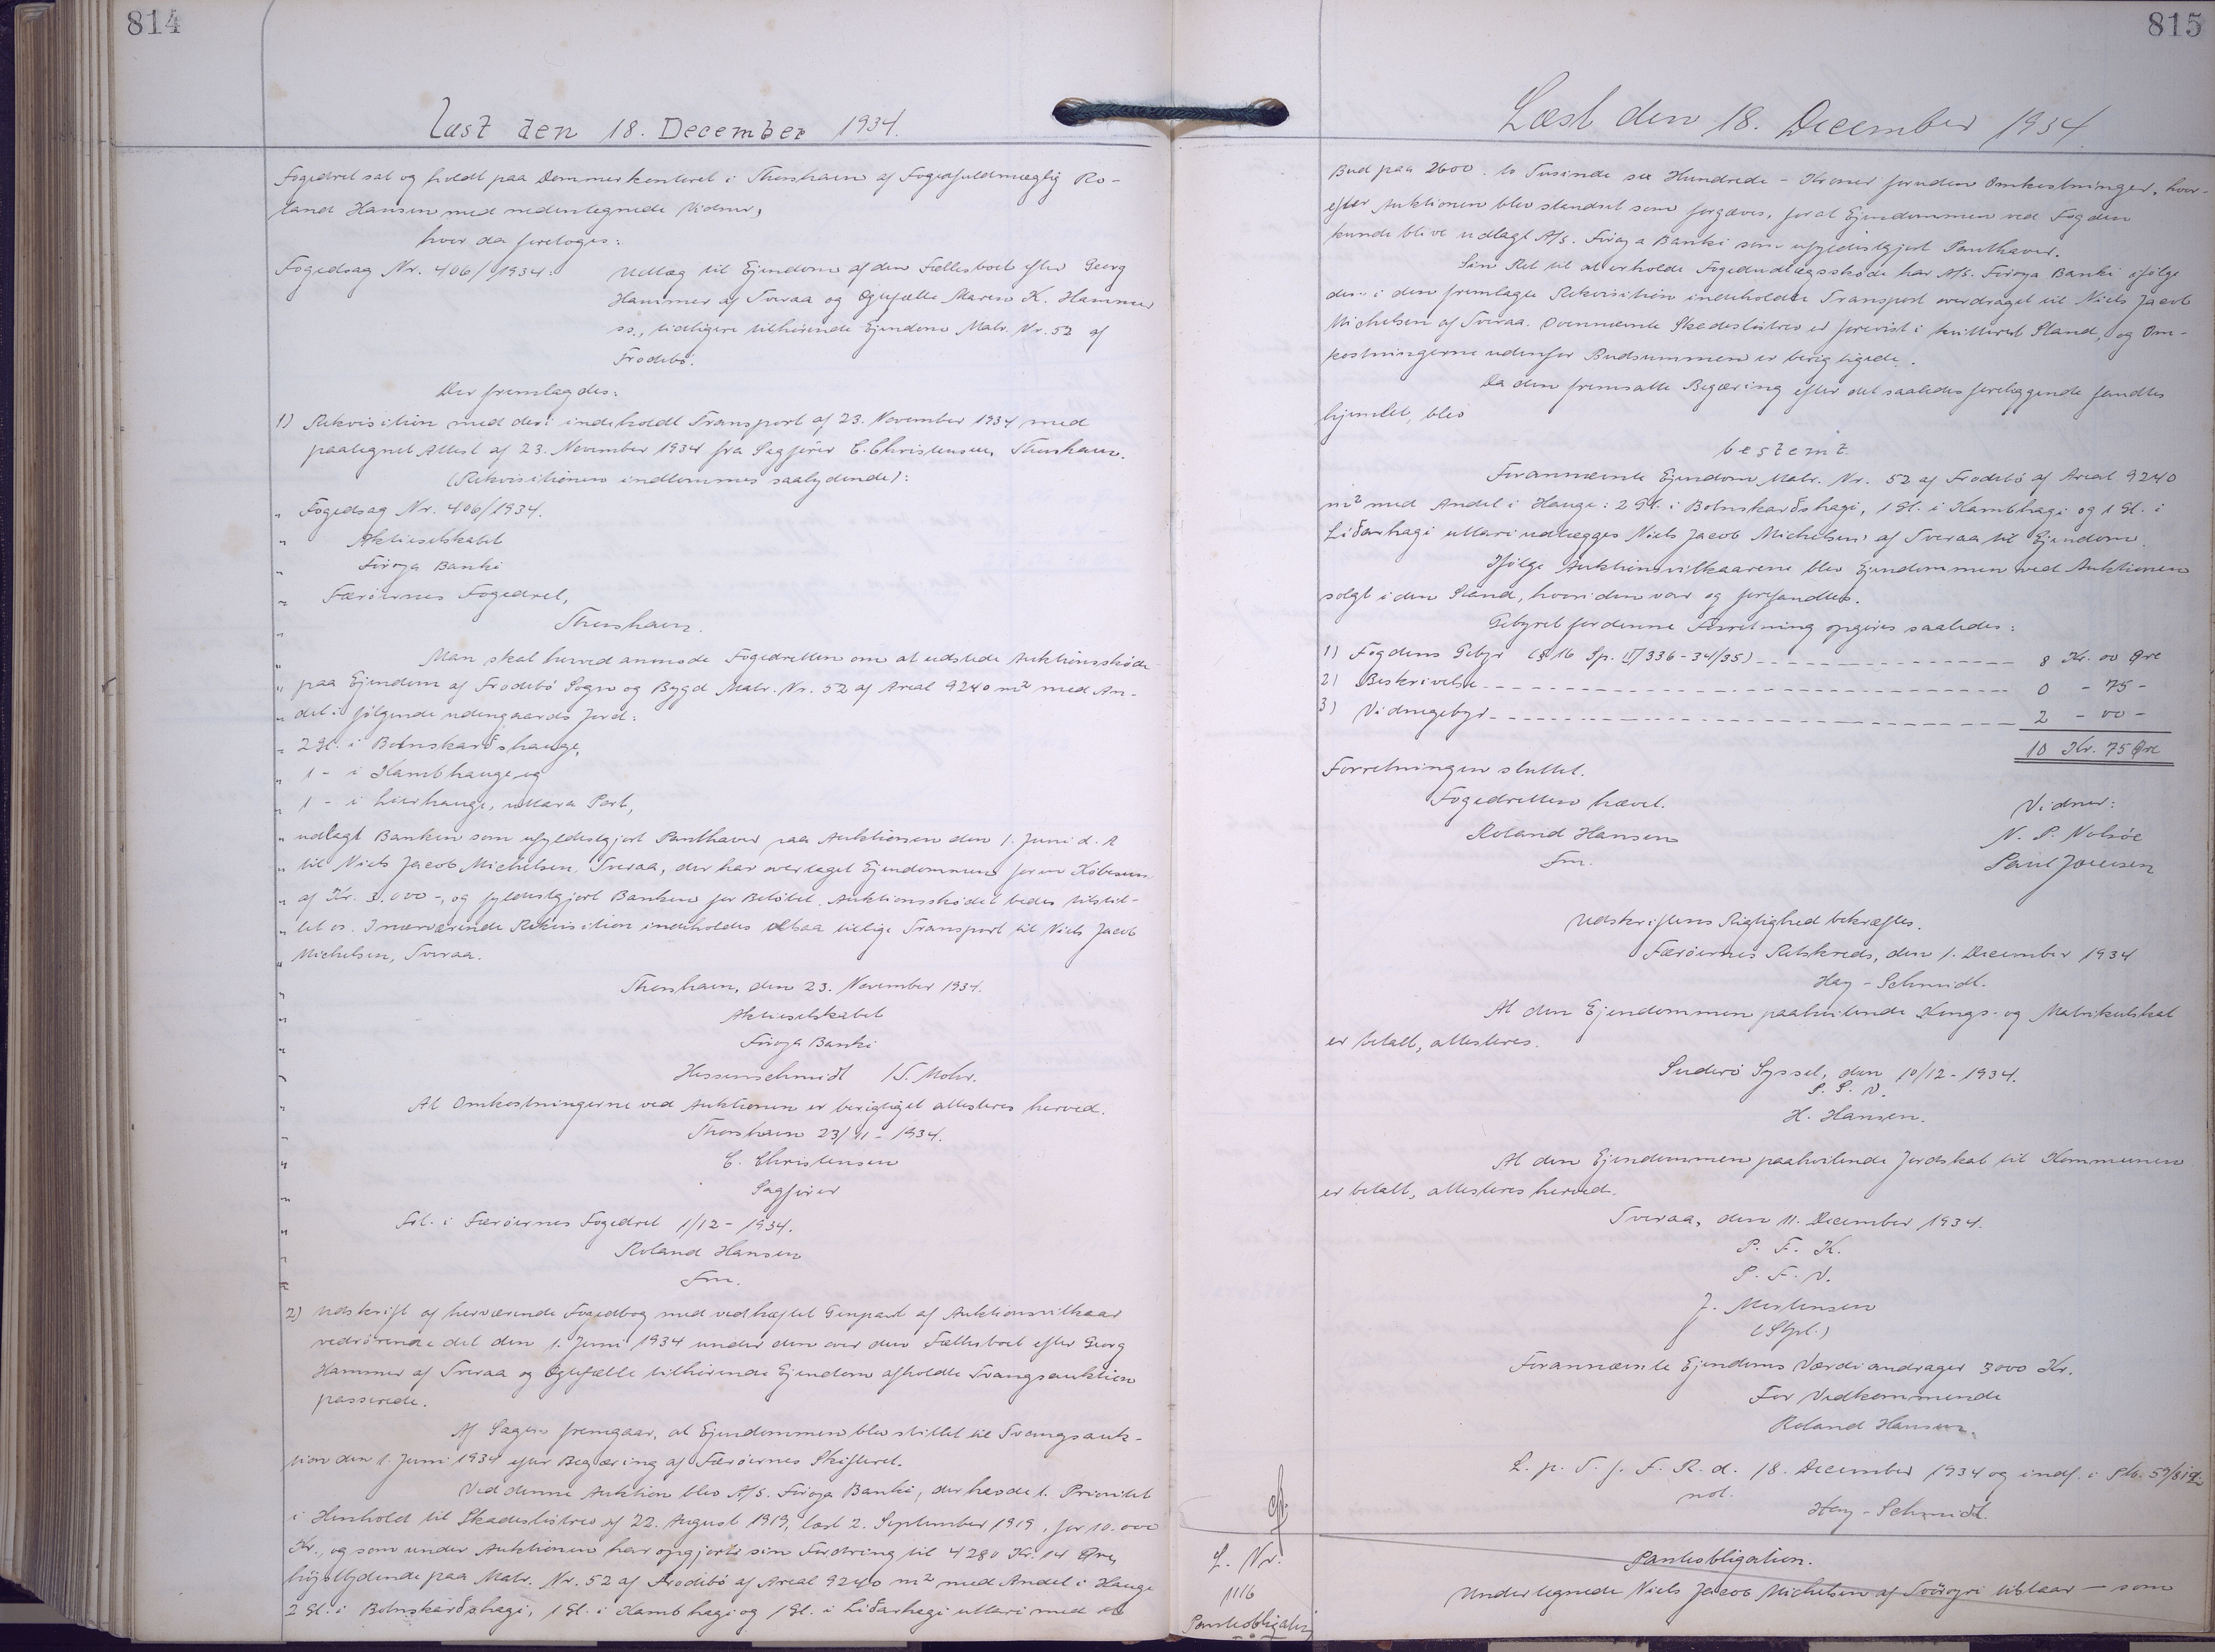 814
Læst den 18. December 1934.
Fogedret sat og holdt paa Dommerkontoret i Thorshavn af Fogedfuldmægtig Ro-
land Hansen med nedentegnede Vidner,
hvor da foretoges:
Fogedsag Nr. 406/1934: Udlæg til Ejendom af den Fællesboet efter Georg
Hammer af Tveraa og Ægtefælle Maren K. Hammer
ss., tidligere tilhørende Ejendom Matr. Nr. 52 af
Frodebö.
Der fremlagdes:
1) Rekvisition med deri indeholdt Transport af 23. November 1934 med
paategnet Attest af 23. November 1934 fra Sagfører C. Christensen, Thorshavn.
(Rekvisitionen indlemmes saalydende):
" Fogedsag Nr. 406/1934.
" Aktieselskabet
" Föroya Banki
" Færöernes Fogedret,
" Thorshavn.
" Man skal herved anmode Fogedretten om at udstede Auktionsskøde
" paa Ejendom af Frodebö Sogn og Bygd Matr. Nr. 52 af Areal 9240 m² med An-
" del i følgende udengaards Jord:
" 2 Gl. i Botnskarðshauge,
" 1 - i Kambhauge og
" 1 - i Liðarhauge, uttara Part,
" udlagt Banken som ufyldestgjort Panthaver paa Auktionen den 1. Juni d. A
" til Niels Jacob Michelsen, Tveraa, der har overtaget Ejendommen for en Købesum
" af Kr. 3.000 -, og fyldestgjort Banken for Beløbet. Auktionsskødet bedes tilstil-
" let os. I nærværende Rekvisition indeholdes altsaa tillige Transport til Niels Jacob
" Michelsen, Tveraa.
" Thorshavn, den 23. November 1934.
" Aktieselskabet
" Föroya Banki
" Hessenschmidt / S. Mohr.
" At Omkostningerne ved Auktionen er berigtiget attesteres herved.
" Thorshavn 23/11 - 1934.
" C. Christensen
" Sagfører
" Fol. i Færöernes Fogedret 1/12 - 1934.
" Roland Hansen
" Fm.
2) Udskrift af herværende Fogedbog med vedhæftet Genpart af Auktionsvilkaar
vedrörende det den 1. Juni 1934 under den over den Fællesboet efter Georg
Hammer af Tveraa og Ægtefælle tilhørende Ejendom afholdte Tvangsauktion
passerede.
Af Sagen fremgaar, at Ejendommen blev stillet til Tvangsauk-
tion den 1. Juni 1934 efter Begæring af Færöernes Skifteret.
Ved denne Auktion blev A/S. Föroya Banki, der havde 1. Prioritet
i Henhold til Skadesløsbrev af 22. August 1919, læst 2. September 1919, for 10.000
Kr., og som under Auktionen har opgjort sin Fordring til 4280 Kr. 14 Øre,
højstbydende paa Matr. Nr. 52 af Frodebö af Areal 9240 m² med Andel i Hauge
2 Gl. i Botnskarðshagi, 1 Gl. i Kambhagi og 1 Gl. i Liðarhagi uttari med et
815
Læst den 18. December 1934.
Bud paa 2600. to Tusinde sex Hundrede - Kroner foruden Omkostninger, hvor-
efter Auktionen blev standset som forgæves, for at Ejendommen ved Fogden
kunde blive udlagt A/S. Föroya Banki som ufyldestgjort Panthaver.
Sin Ret til at erholde Fogedudlægsskøde har A/S. Föroya Banki ifølge
den i den fremlagte Rekvisition indeholdte Transport overdraget til Niels Jacob
Michelsen af Tveraa. Ovennævnte Skadesløsbrev er forevist i kvitteret Stand, og Om-
kostningerne udenfor Budsummen er berigtigede.
Da den fremsatte Begæring efter det saaledes foreliggende fandtes
hjemlet, blev
bestemt
Forannævnte Ejendom Matr. Nr. 52 af Frodebö af Areal 9240
m² med Andel i Hauge: 2 Gl. i Botnskarðshagi, 1 Gl. i Kambhagi og 1 Gl. i
Liðarhagi uttari udlægges Niels Jacob Michelsen af Tveraa til Ejendom.
Ifølge Auktionsvilkaarene blev Ejendommen ved Auktionen
solgt i den Stand, hvori den var og forefandtes.
Gebyret for denne Forretning opgøres saaledes:
1) Fogdens Gebyr (§ 16 Sp. II/336-34/35) 8 Kr. 00 Øre
2) Beskrivelse 0 - 75 -
3) Vidnegebyr 2 - 00 -
10 Kr. 75 Øre
Forretningen sluttet.
Fogedretten hævet. Vidner:
Roland Hansen N. P. Nolsöe
Fm. Paul Joensen
Udskriftens Rigtighed bekræftes.
Færöernes Retskreds, den 1. December 1934
Hey-Schmidt.
At den Ejendommen paahvilende Kongs- og Matrikulskat
er betalt, attesteres.
Suderö Syssel, den 10/12 - 1934.
P. S. V.
H. Hansen.
At den Ejendommen paahvilende Jordskat til Kommunen
er betalt, attesteres herved.
Tveraa, den 11. December 1934.
P. F. K.
P. F. V.
J. Mortensen
(Stpl.)
Forannævnte Ejendoms Værdi andrager 3000 Kr.
For Vedkommende
Roland Hansen.
L. p. T. f. F. R. d. 18. December 1934 og indf. i Skb.
not.
Hey-Schmidt.
L. Nr.
1116
Pantobligation
Pantobligation.
Undertegnede Niels Jacob Michelsen af Tvöroyri tilstaar - som